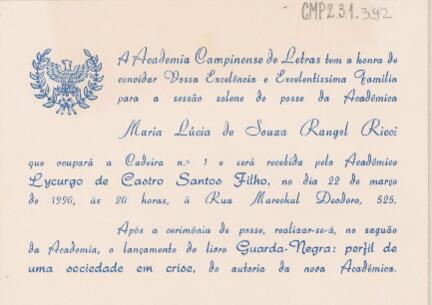 CMP2.3.1.392
A Academia Campinense de Letras tem a honra de
convidar Vossa Excelência e Excelentíssima Família
para a sessão solene de posse da Acadêmica
Maria Lúcia de Souza Rangel Ricci
que ocupará a Cadeira n.º 1 e será recebida pelo Acadêmico
Lycurgo de Castro Santos Filho, no dia 22 de março
de 1990, às 20 horas, à Rua Marechal Deodoro, 525.
Após a cerimônia de posse, realizar-se-á, no saguão
da Academia, o lançamento do livro Guarda-Negra: perfil de
uma sociedade em crise, de autoria da nova Acadêmica.